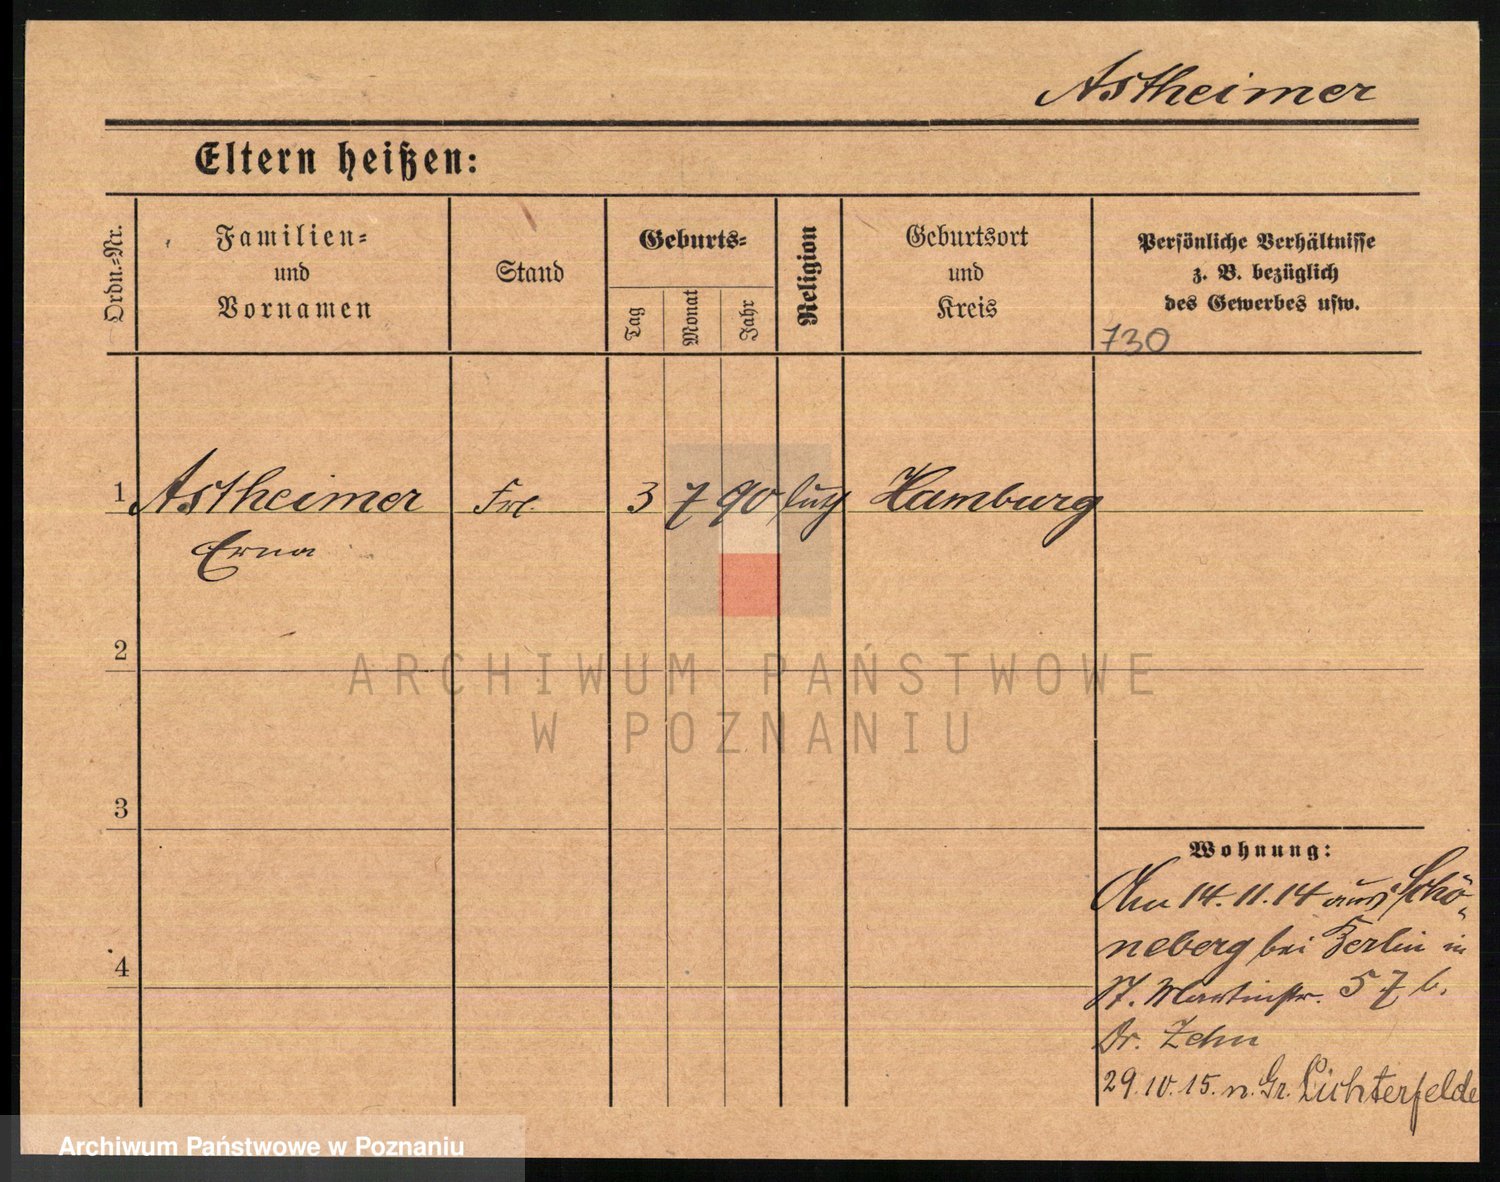 Astheimer
Eltern heißen:
Ordn.-Nr.
Familien-
und
Vornamen
Stand
Geburts-
Tag
Monat
Jahr
Religion
Geburtsort
und
Kreis
Persönliche Verhältnisse
z. B. bezüglich
des Gewerbes usw.
730
1 Astheimer Frl. 3 7 90 luth Hamburg
Erna
2
ARCHIWUM PAŃSTWOWE
W POZNANIU
3
Wohnung:
Am 14.11.14 aus Schö-
neberg bei Berlin in
St. Martinstr. 57 b.
4
Dr. Zehn
29.10.15. n. Gr. Lichterfelde
Archiwum Państwowe w Poznaniu